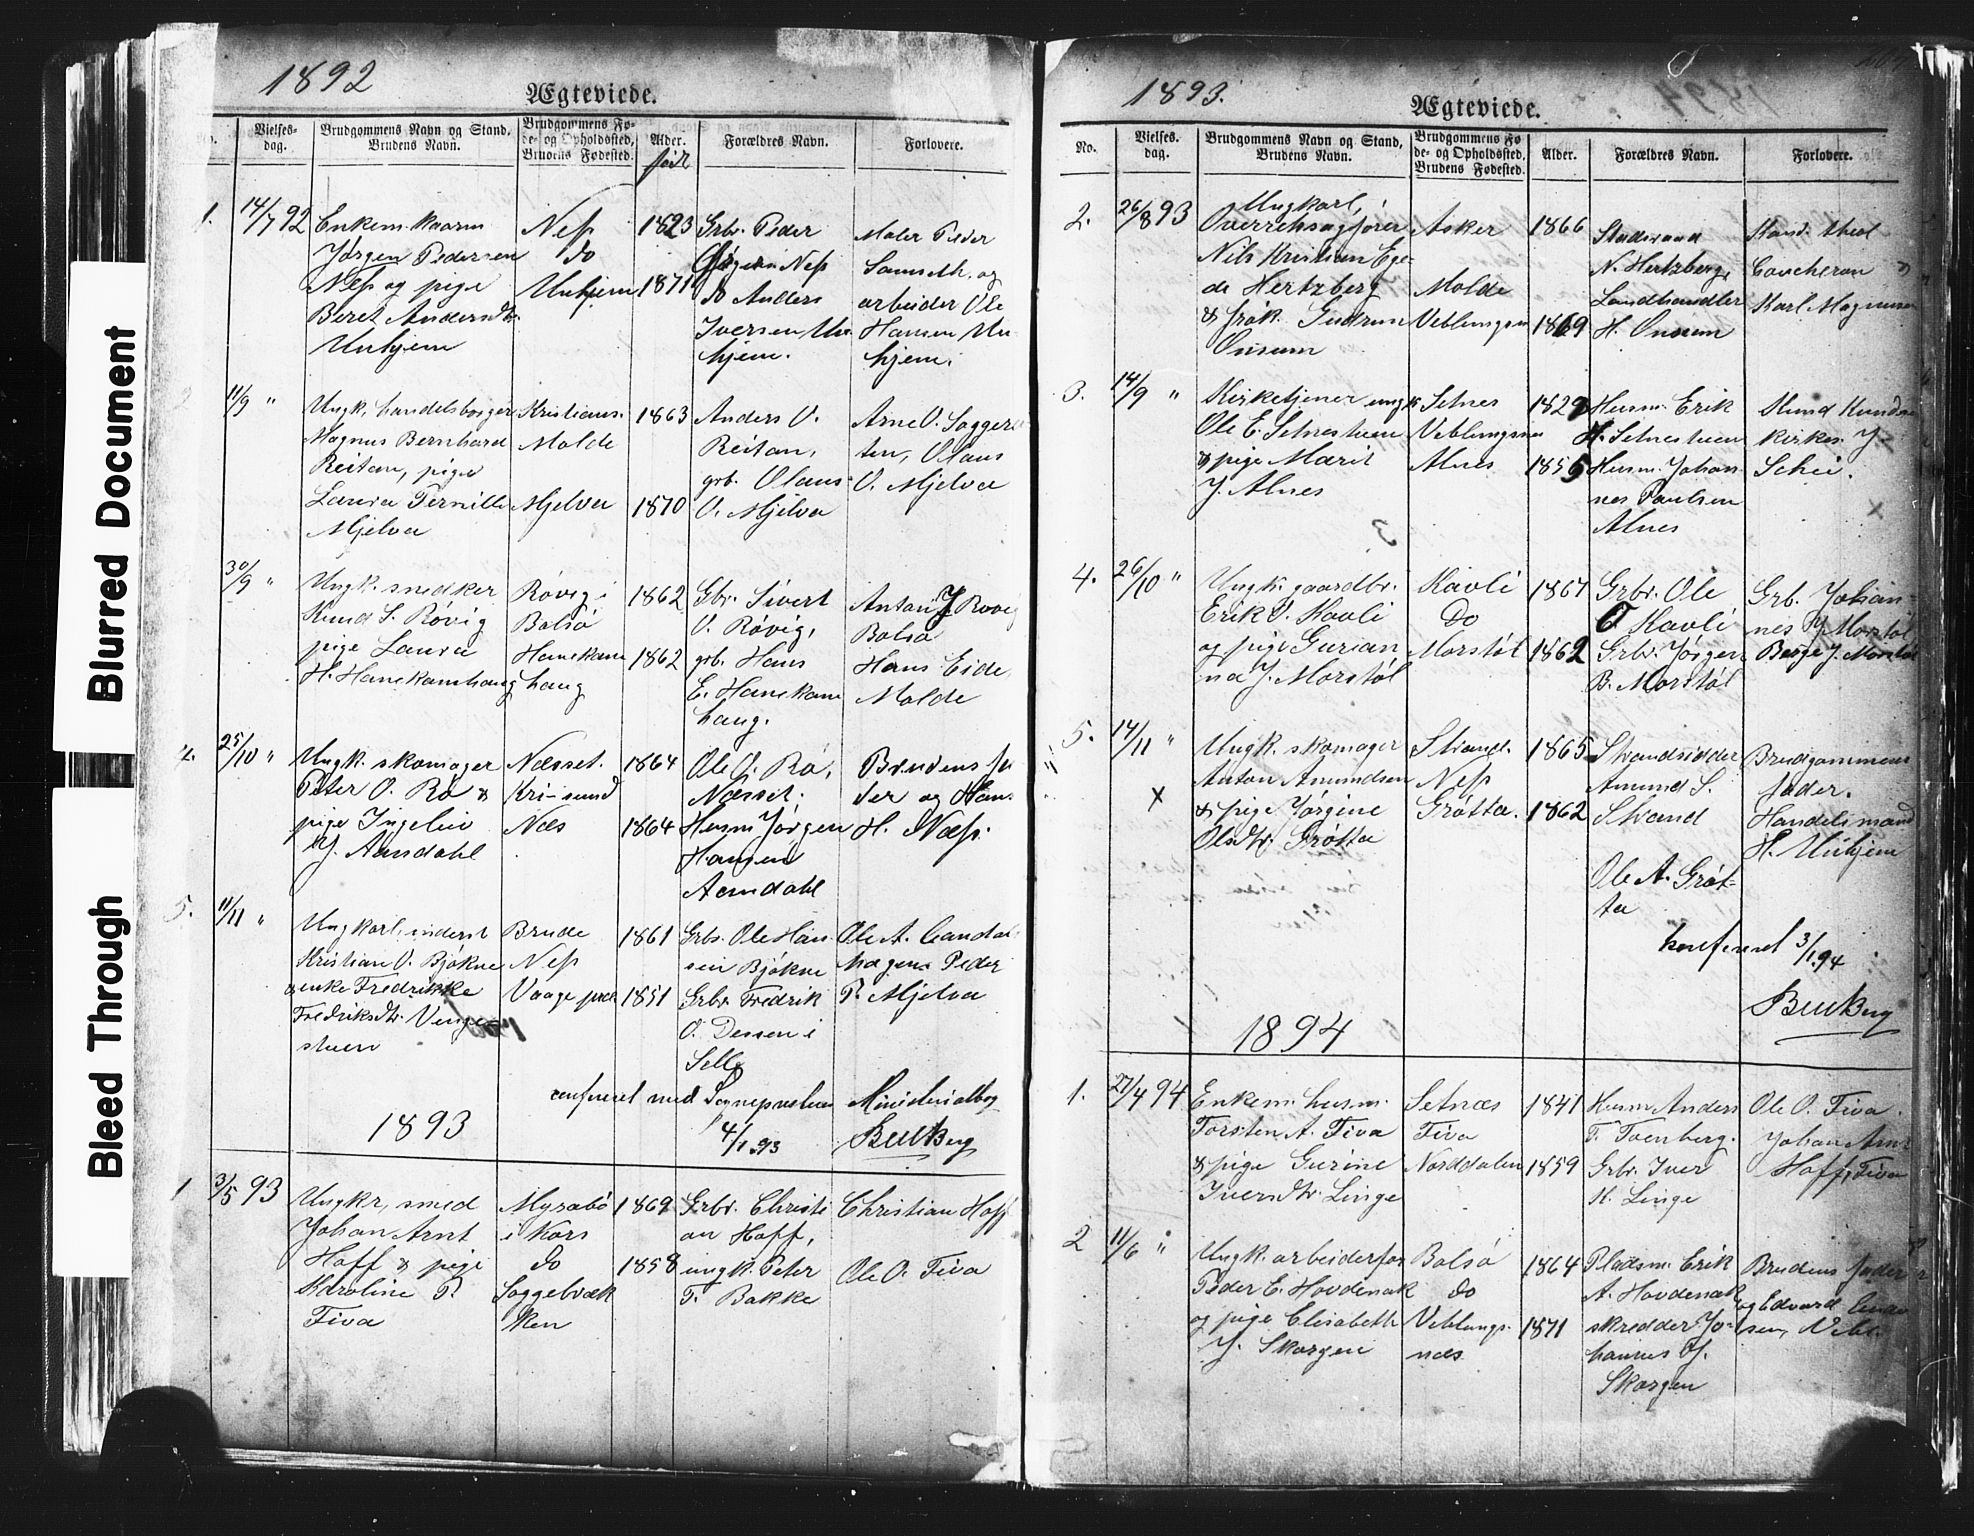 Blurred Document
Bleed Through
1892
Ægteviede.
Vielses-dag.
Brudgommens Navn og Stand, Brudens Navn.
Brudgommens Fø-de- og Opholdssted, Brudens Fødested.
Alder. født
Forældres Navn.
Forlovere.
1. 14/7 92
Enkem. Kaarm
Jørgen Pedersen
Nesſ og pige
Beret Andersdtr.
Unhjem
Nesſ
do
Unhjem
1823
1871
Grbr. Peder
Jørgen Nesſ
do Anders
Iversen Un
hjem.
Maler Peder
Samsth. og
arbeider Ole
Hansen Un
hjem.
11/9 "
Ungk. handelsborger
Magnus Bernhard
Reitan, pige
Laura Pernille
Mjelva
Kristians.
Molde
Mjelva
1863
1870
Anders O.
Reitan,
grb. Olaus
O. Mjelva
Arne O. Sogge
ten, Olaus
O. Mjelva
30/9 "
Ungk. snedker
Knud S. Røvig
pige Laura
H. Hanekamhaug
Røvig i
Bolsø
Hanekam
haug
1862
1862
Gbr. Sivert
O. Røvig,
grb. Hans
E. Hanekam
haug.
Anton J Røvig
Bolsø
Hans Eide
Molde
4. 25/10 "
Ungk. skomager
Peter O. Rø &
pige Ingeleiv
J. Aandahl
Næsset.
Kri-sund
Næs
1864
1864
Ole O. Rø,
Næsset.
Husm Jørgen
Hansen
Aandahl
Brudens fa
der og Han.
H. Næsſ.
5. 11/11 "
Ungkarl, inderst
Kristian O. Bjøkne
& enke Fredrikke
Fredriksdtr. Venge-
stuen
Brude
Nesſ
Vaage
1861
1851
Grbr. Ole Han
sen Bjøkne
Grbr. Fredrik
O. Dessen i
Sell
Ole A. Aandal
Peder
P. Mjelva
conferert med Sognepræstens Ministerialbog
4/1 93
1893
1 3/5 93
Ungkr, smed
Johan Arnt
Hoff & pige
Karoline P.
Fiva
Myrabø
i Kors
do
Soggebræk
ken
1869
1858
Grbr. Christi
an Hoff,
ungk. Peter
T. Bakke
Christian Hoff
Ole O. Fiva
1893.
Ægteviede.
No.
Vielses-dag.
Brudgommens Navn og Stand, Brudens Navn.
Brudgommens Fø-de- og Opholdssted, Brudens Fødested.
Alder.
Forældres Navn.
Forlovere.
2. 26/8 93
Ungkarl,
Overretssagfører
Nils Kristian Ege-
de Hertzberg
& frøk. Gudrun
Onsum
Asker
Molde
Veblungsn
1866
1869
Stadsraad
N. Hertzberg,
Landhandler
H. Onsum
Kand. theol
Coucheron
Karl Magnussen
3. 14/9 "
Kirketjener ungk
Ole E. Setnestuen
& pige Marit
J. Alnes
Setnes
Veblungsnes
Alnes
1829
1855
Husm. Erik
H. Setnestuen
Husm. Johan
nes Paulsen
Alnes
Knud Knudsen
kirkes. J
Schei.
4. 26/10 "
Ungk. gaardbr.
Erik O. Kavli
og pige Gurian
na J. Morstøl
Kavli
Do
Morstøl
1867
1862
Grbr. Ole
O Kavli
Grbr. Jørgen
B. Morstøl
Grb. Johan-
nes J Morstøl
Børge J. Morstøl
5. 14/11 "
Ungk. skomager
Anton Amundsen
& pige Jørgine
Olsdtr. Grøtta
Strand.
Nesſ
Grøtta.
1865
1862
Strandsidder
Amund S.
Strand
Ole A. Grøt-
ta
Brudgommens
fader.
Handelsmand
H. Unhjem
konfereret 3/1 94
1894
1. 27/4 94
Enkem. husm.
Torsten A. Fiva
& pige Gurine
Iversdtr. Linge
Setnæs
Fiva
Norddalen
1841
1859
Husm Anders
T. Tvenberg.
Grbr. Iver
K. Linge
Ole O. Fiva.
Johan Arnt
Hoff, Fiva
2 11/6 "
Ungk. arbeiderfor
Peder E. Hovdenak
og pige Elisabeth
J. Skorgen
Bolsø
do
Veblungs-
næs
1864
1871
Pladsm. Erik
A. Hovdenak
skredder Jo-
hannes J.
Skorgen
Brudens fader
og Edvard
sen, Vebl.